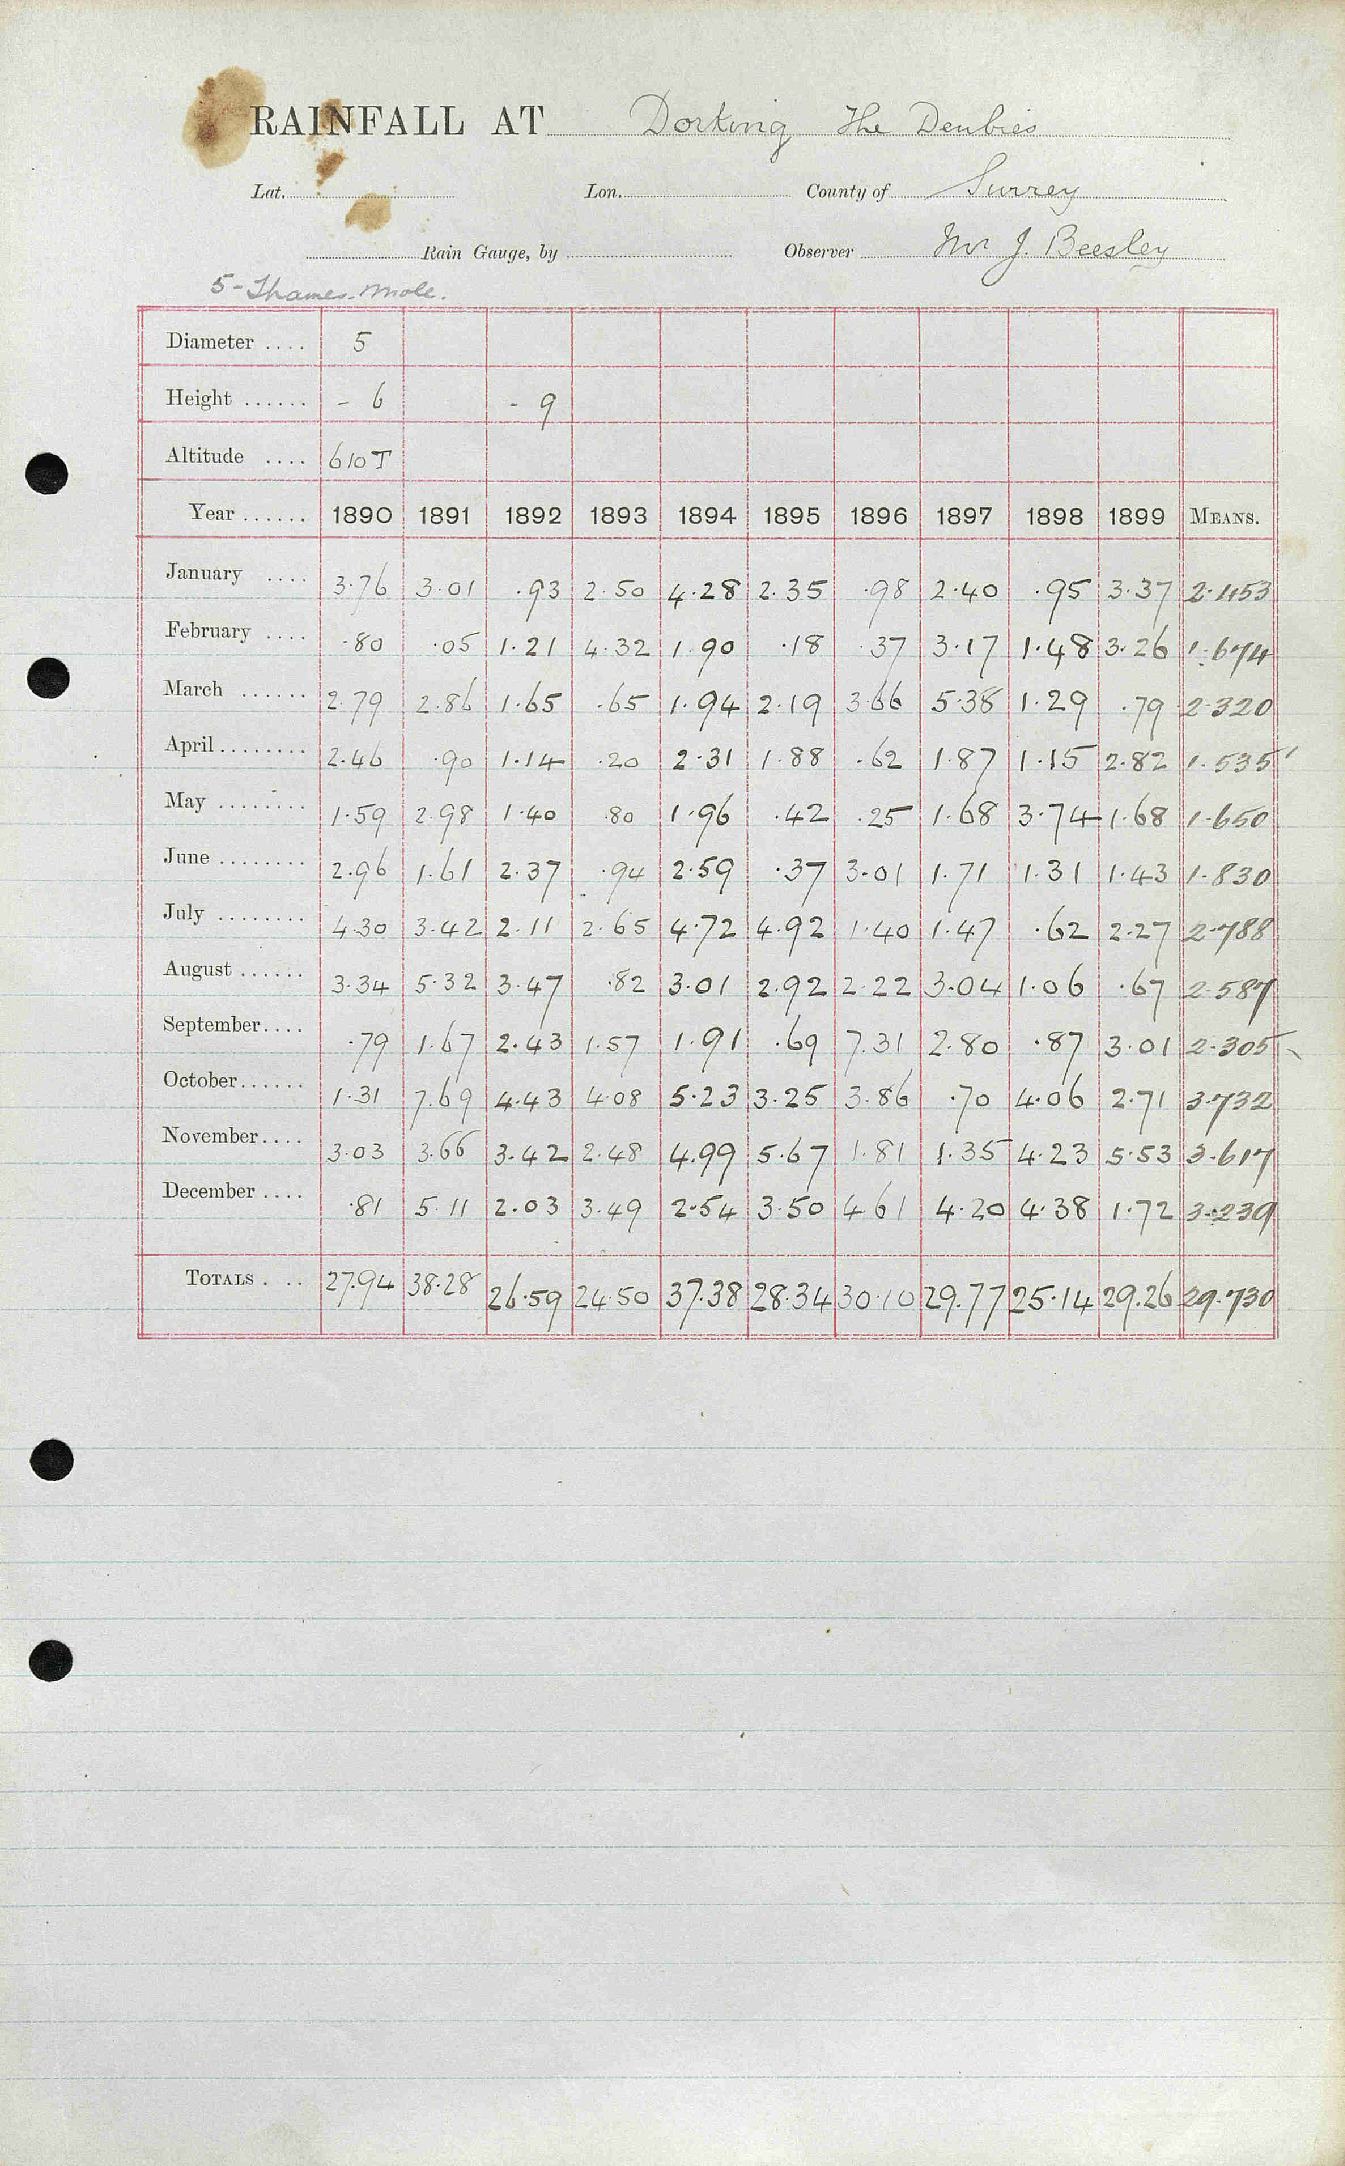 RAINFALL AT Dorking The Denbies
Lat. Lon. County of Surrey
Rain Gauge, by Observer Mr J. Beesley
5-Thames-Mole.
Diameter .... 5
Height ...... - 6 - 9
Altitude .... 610 T
Year ...... 1890 1891 1892 1893 1894 1895 1896 1897 1898 1899 MEANS.
January .... 3.76 3.01 .93 2.50 4.28 2.35 .98 2.40 .95 3.37 2.453
February .... .80 .05 1.21 4.32 1.90 .18 .37 3.17 1.48 3.26 1.674
March ...... 2.79 2.86 1.65 .65 1.94 2.19 3.66 5.38 1.29 .79 2.320
April ........ 2.46 .90 1.14 .20 2.31 1.88 .62 1.87 1.15 2.82 1.535
May ........ 1.59 2.98 1.40 .80 1.96 .42 .25 1.68 3.74 1.68 1.650
June ........ 2.96 1.61 2.37 .94 2.59 .37 3.01 1.71 1.31 1.43 1.830
July ........ 4.30 3.42 2.11 2.65 4.72 4.92 1.40 1.47 .62 2.27 2.788
August ...... 3.34 5.32 3.47 .82 3.01 2.92 2.22 3.04 1.06 .67 2.587
September.... .79 1.67 2.43 1.57 1.91 .69 7.31 2.80 .87 3.01 2.305
October...... 1.31 7.69 4.43 4.08 5.23 3.25 3.86 .70 4.06 2.71 3.732
November.... 3.03 3.66 3.42 2.48 4.99 5.67 1.81 1.35 4.23 5.53 3.617
December .... .81 5.11 2.03 3.49 2.54 3.50 4.61 4.20 4.38 1.72 3.239
TOTALS . .. 27.94 38.28 26.59 24.50 37.38 28.34 30.10 29.77 25.14 29.26 29.730